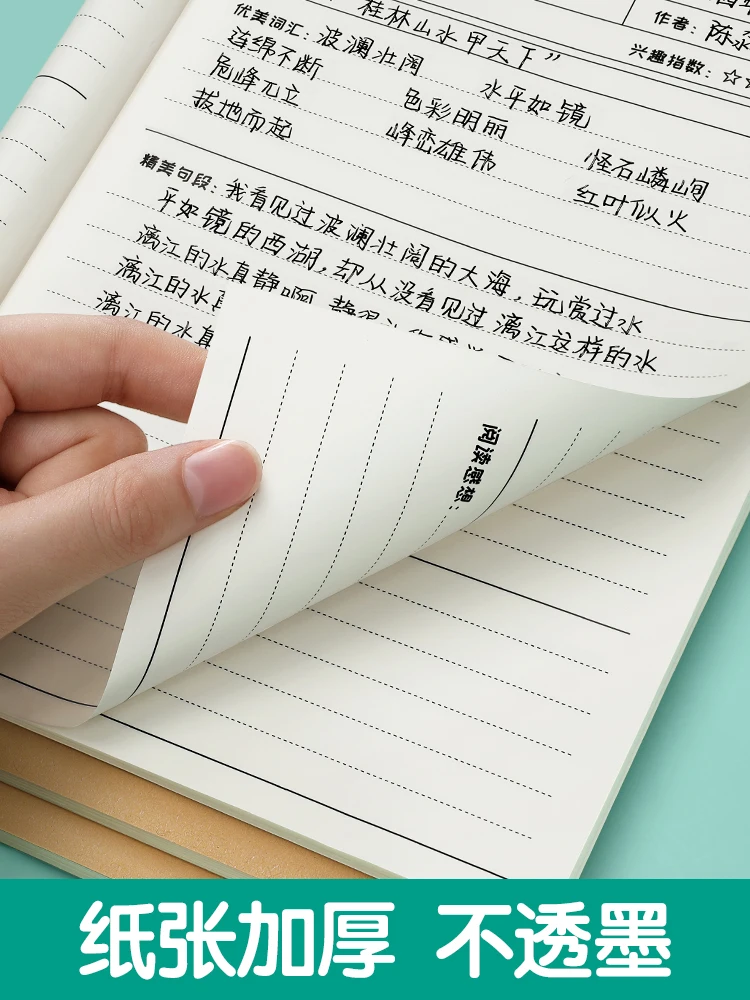 桂林山水甲天下”
作者：陈
兴趣指数：☆
优美词汇：波澜壮阔 水平如镜
连绵不断 色彩明丽 怪石嶙峋
危峰兀立 峰峦雄伟 红叶似火
拔地而起
精美句段：我看见过波澜壮阔的大海，玩赏过水
平如镜的西湖，却从没看见过漓江这样的水
漓江的水真静啊
漓江的水
漓江的水真
阅读感想：
纸张加厚 不透墨